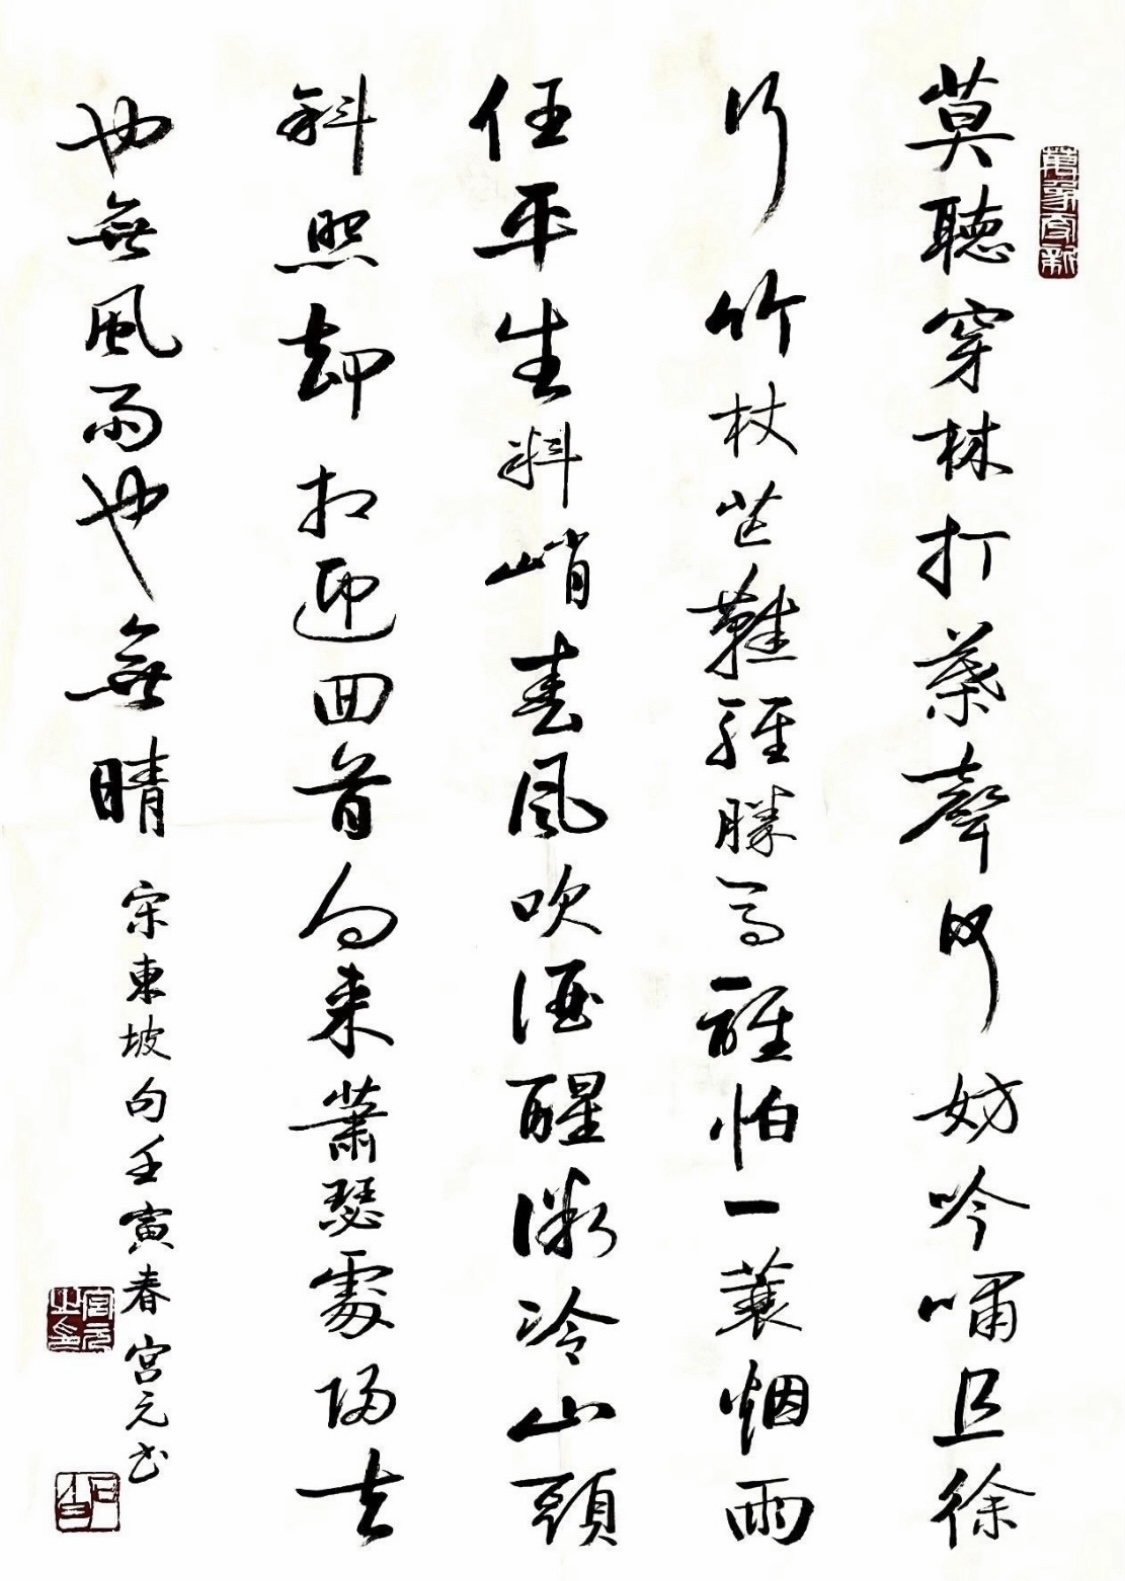 萬象更新
莫聽穿林打葉聲何妨吟嘯且徐
行竹杖芒鞋輕勝馬誰怕一蓑烟雨
任平生料峭春風吹酒醒微冷山頭
斜照却相迎回首向来蕭瑟處歸去
也無風雨也無晴
宋東坡句壬寅春宫元书
宫元之印